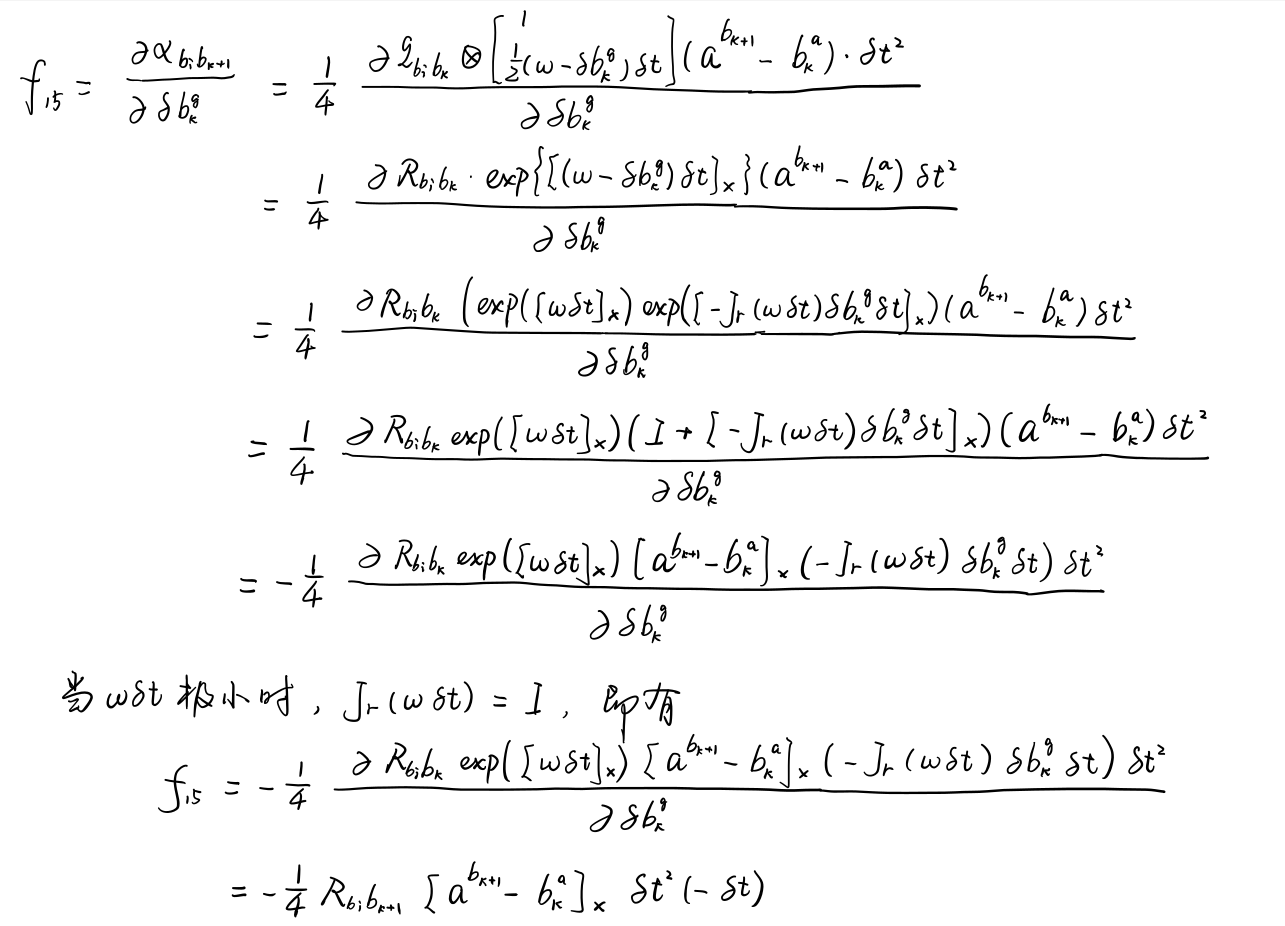 $f_{15} = \frac{\partial \alpha_{b_i b_{k+1}}}{\partial \delta b_k^g} = \frac{1}{4} \frac{\partial q_{b_i b_k} \otimes \begin{bmatrix} 1 \\ \frac{1}{2}(\omega - \delta b_k^g) \delta t \end{bmatrix} (a^{b_{k+1}} - b_k^a) \cdot \delta t^2}{\partial \delta b_k^g}$
$= \frac{1}{4} \frac{\partial R_{b_i b_k} \cdot exp\{[(\omega - \delta b_k^g) \delta t]_\times\} (a^{b_{k+1}} - b_k^a) \delta t^2}{\partial \delta b_k^g}$
$= \frac{1}{4} \frac{\partial R_{b_i b_k} (exp([\omega \delta t]_\times) exp([-J_r(\omega \delta t) \delta b_k^g \delta t]_\times) (a^{b_{k+1}} - b_k^a) \delta t^2}{\partial \delta b_k^g}$
$= \frac{1}{4} \frac{\partial R_{b_i b_k} exp([\omega \delta t]_\times) (I + [-J_r(\omega \delta t) \delta b_k^g \delta t]_\times) (a^{b_{k+1}} - b_k^a) \delta t^2}{\partial \delta b_k^g}$
$= -\frac{1}{4} \frac{\partial R_{b_i b_k} exp([\omega \delta t]_\times) [a^{b_{k+1}} - b_k^a]_\times (-J_r(\omega \delta t) \delta b_k^g \delta t) \delta t^2}{\partial \delta b_k^g}$
当 $\omega \delta t$ 极小时, $J_r(\omega \delta t) = I$, 即有
$f_{15} = -\frac{1}{4} \frac{\partial R_{b_i b_k} exp([\omega \delta t]_\times) [a^{b_{k+1}} - b_k^a]_\times (-J_r(\omega \delta t) \delta b_k^g \delta t) \delta t^2}{\partial \delta b_k^g}$
$= -\frac{1}{4} R_{b_i b_{k+1}} [a^{b_{k+1}} - b_k^a]_\times \delta t^2 (-\delta t)$